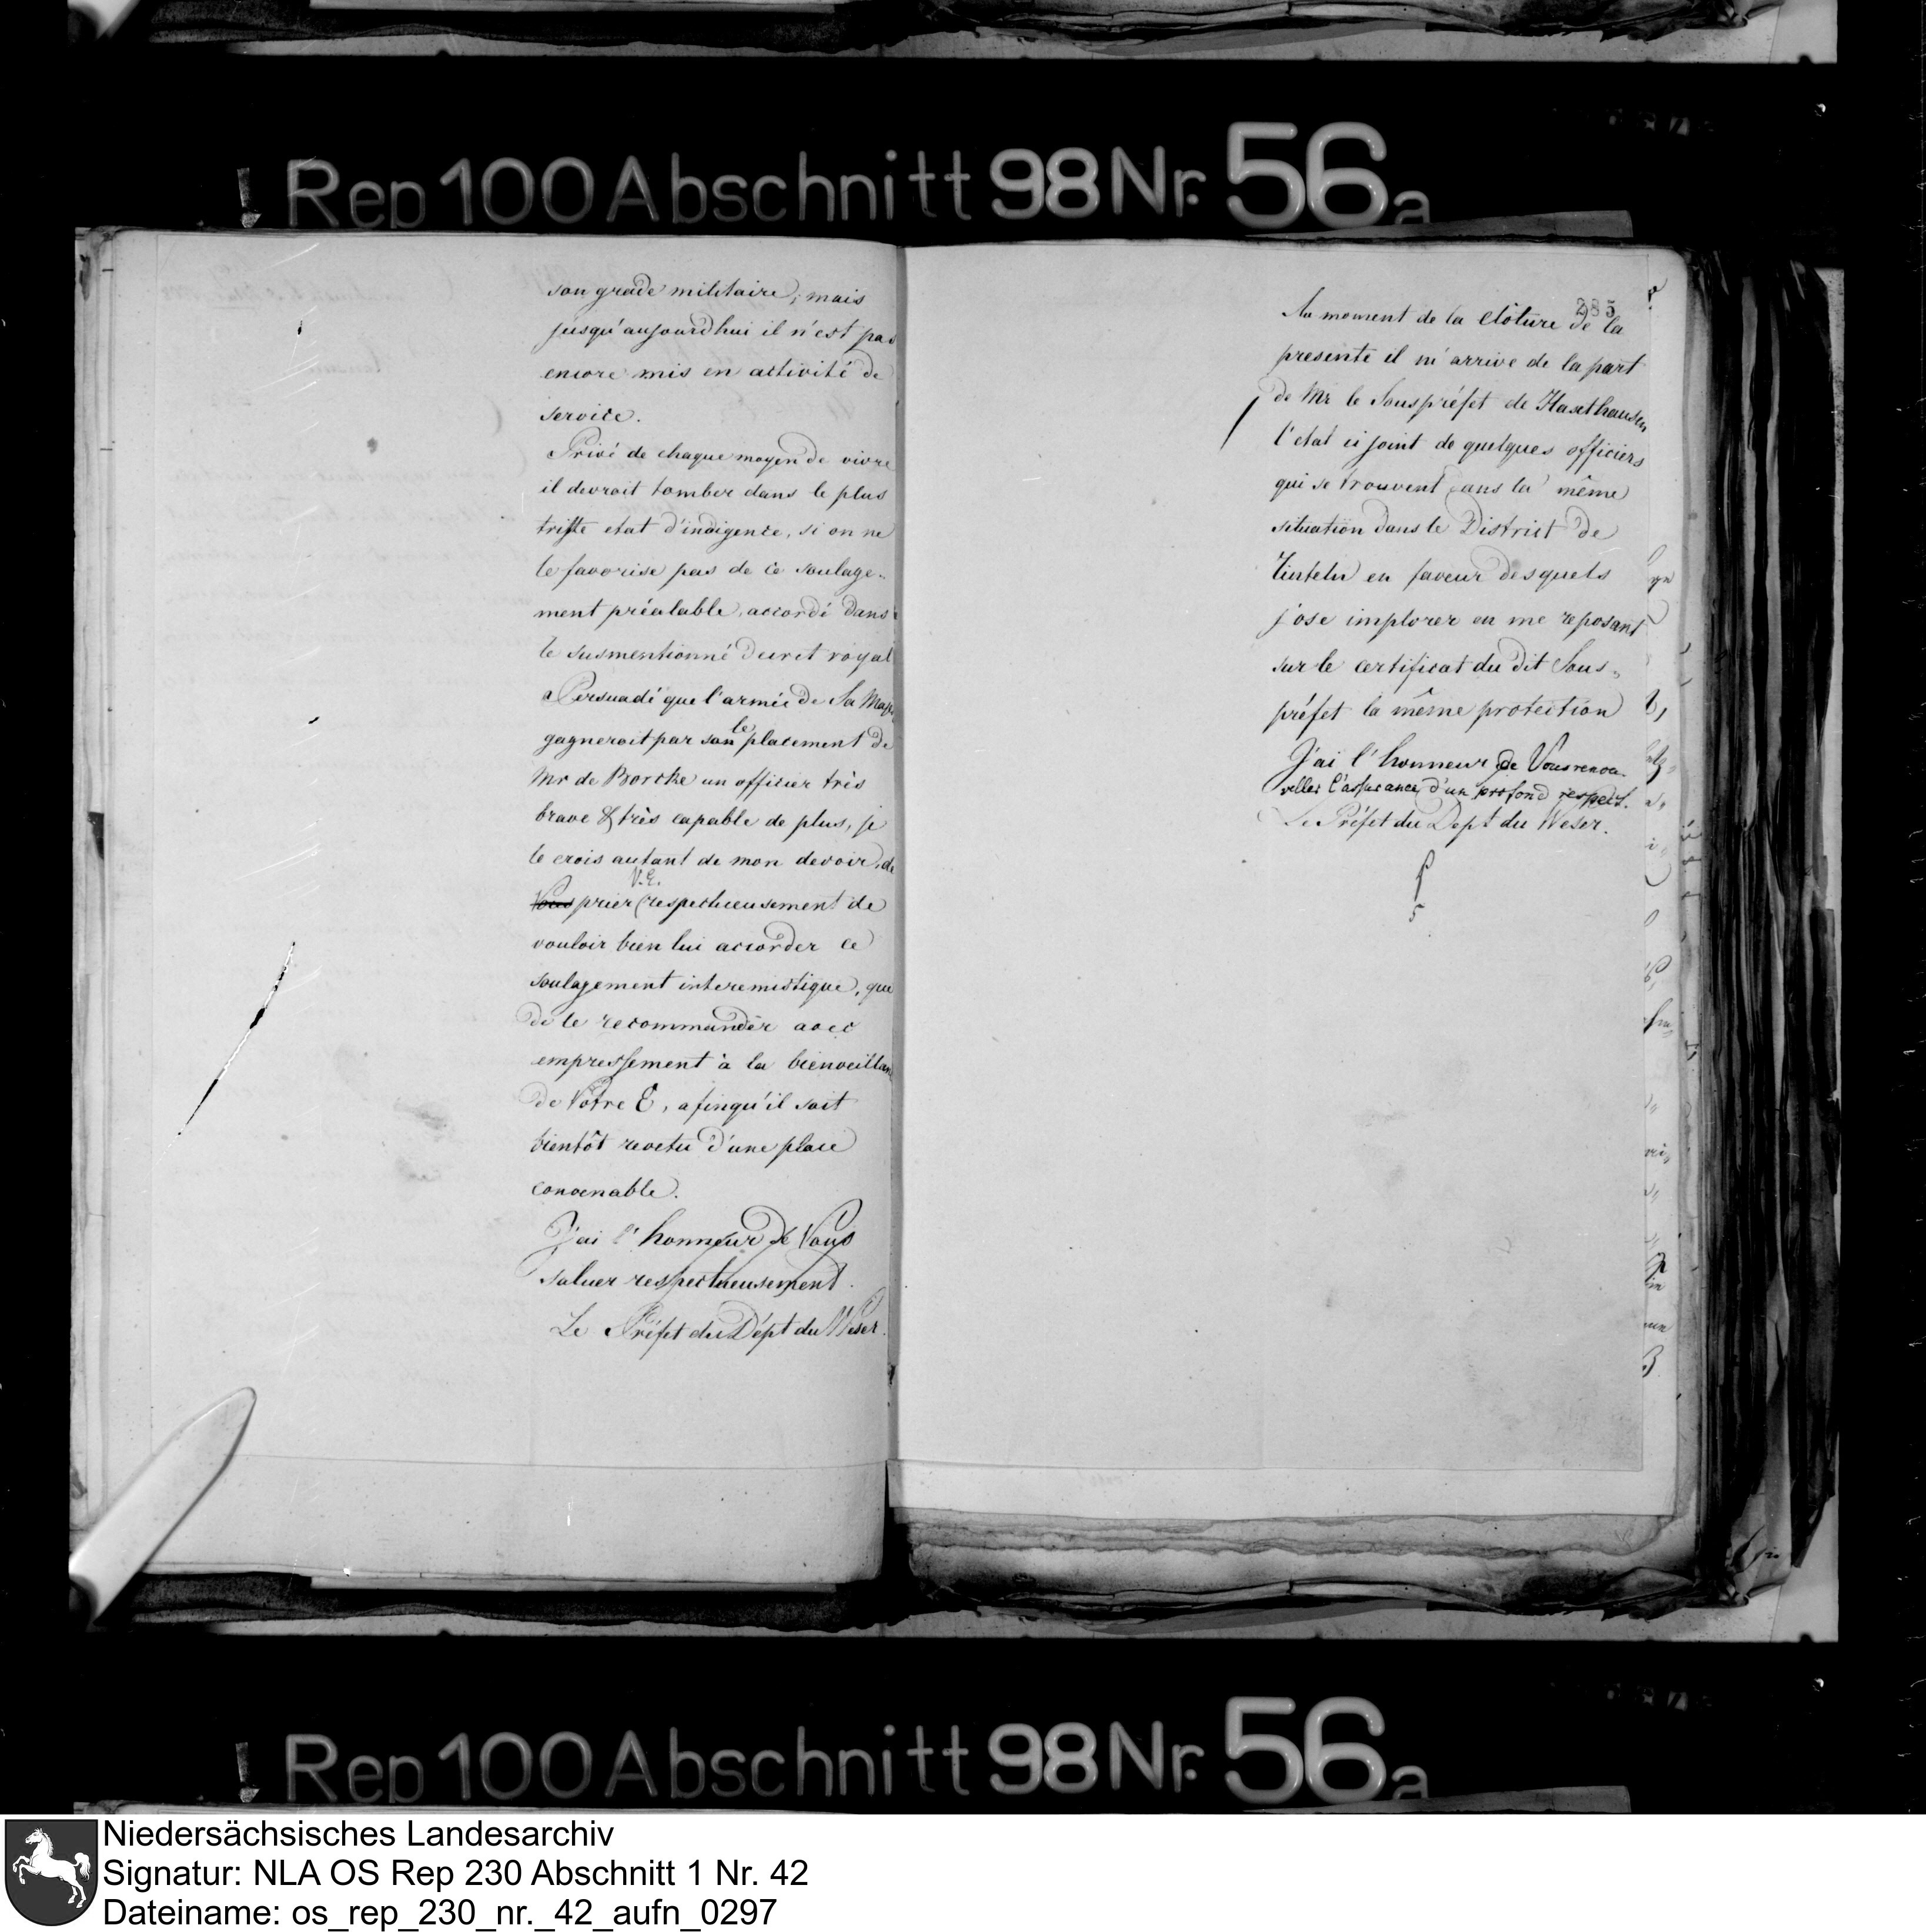 ! Rep 100 Abschnitt 98 Nr. 56a
son grade militaire; mais
jusqu'aujourdhui il n'est pas
encore mis en activité de
service.
Privé de chaque moyen de vivre
il devroit tomber dans le plus
triste etat d'indigence, si on ne
le favorise pas de ce soulage-
ment préalable, accordé dans
le susmentionné decret royal
Persuadé que l'armée de Sa Maj
gagneroit par son le placement de
Mr de Borcke un officier très
brave & très capable de plus, je
le crois autant de mon devoir, de
Vous prier V. E. respectueusement de
vouloir bien lui accorder ce
soulagement interemistique, que
de le recommander avec
empressement à la bienveillan
de Votre E, afinqu'il soit
bientôt revetu d'une place
convenable.
J'ai l'honneur de Vous
saluer respectueusement.
Le Préfet du Dépt du Weser.
285
Au moment de la clôture de la
presente il m'arrive de la part
de Mr le Souspréfet de Haxthausen
l'etat ci joint de quelques officiers
qui se trouvent dans la même
situation dans le District de
Rinteln en faveur desquels
j'ose implorer en me reposant
sur le certificat du dit Sous-
préfet la même protection
J'ai l'honneur de Vous renou-
veller l'assurance d'un profond respect.
Le Préfet du Dept du Weser.
! Rep 100 Abschnitt 98 Nr. 56a
Niedersächsisches Landesarchiv
Signatur: NLA OS Rep 230 Abschnitt 1 Nr. 42
Dateiname: os_rep_230_nr._42_aufn_0297